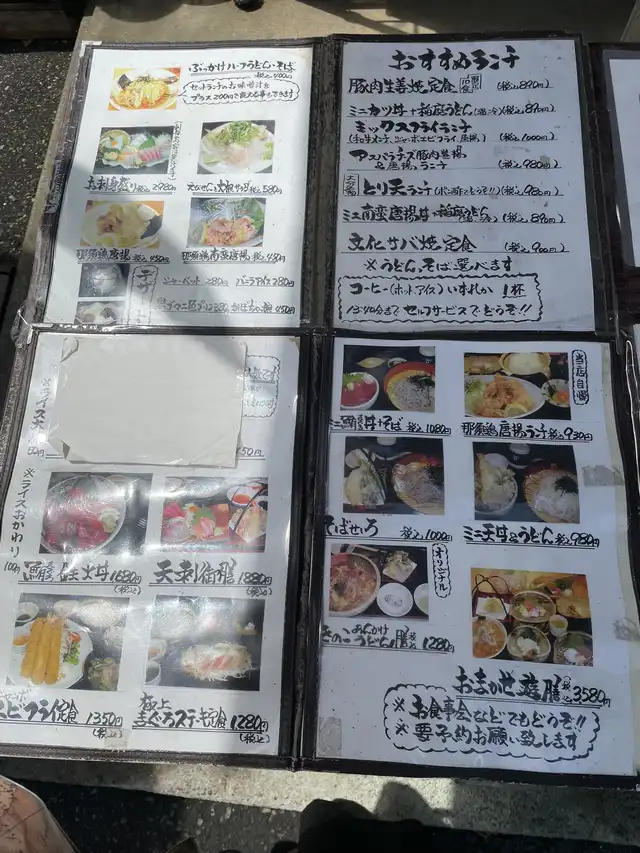 ぶっかけハーフうどん・そば
税込400円
セットランチのお味噌汁を
プラス200円で変える事もできます
お刺身盛り 税込2980円
税込580円
那須鶏唐揚 税込450円
那須鶏南蛮唐揚 税込480円
デザート
シャーベット 280円
バニラアイス 280円
450円
おすすめランチ
豚肉生姜焼定食 限定10食 (税込890円)
ミニカツ丼+稲庭うどん(温・冷) (税込890円)
ミックスフライランチ
(税込1000円)
アスパラチーズ豚肉巻揚
&唐揚ランチ (税込980円)
とり天ランチ(ポン酢でどうぞ!!) (税込980円)
ミニ南蛮唐揚丼+稲庭うどん (税込890円)
文化サバ焼定食 (税込900円)
※うどん、そば選べます
コーヒー(ホット アイス)いずれか 1杯
13:40分まで セルフサービスでどうぞ!!
※ライス大
50円
※ライスおかわり
100円
鉄火丼 1680円
(税込)
天刺御膳 1880円
(税込)
エビフライ定食 1350円
(税込)
極上
まぐろステーキ定食 1280円
(税込)
当店自慢
ミニ鮪丼+そば 税込1080円
那須鶏唐揚ランチ 税込930円
そばせいろ 税込1000円
ミニ天丼&うどん 税込980円
オリジナル
きのこあんかけうどん膳 税込1280円
おまかせ遊膳 (税込)3580円
※お食事会などでもどうぞ!!
※要予約お願い致します